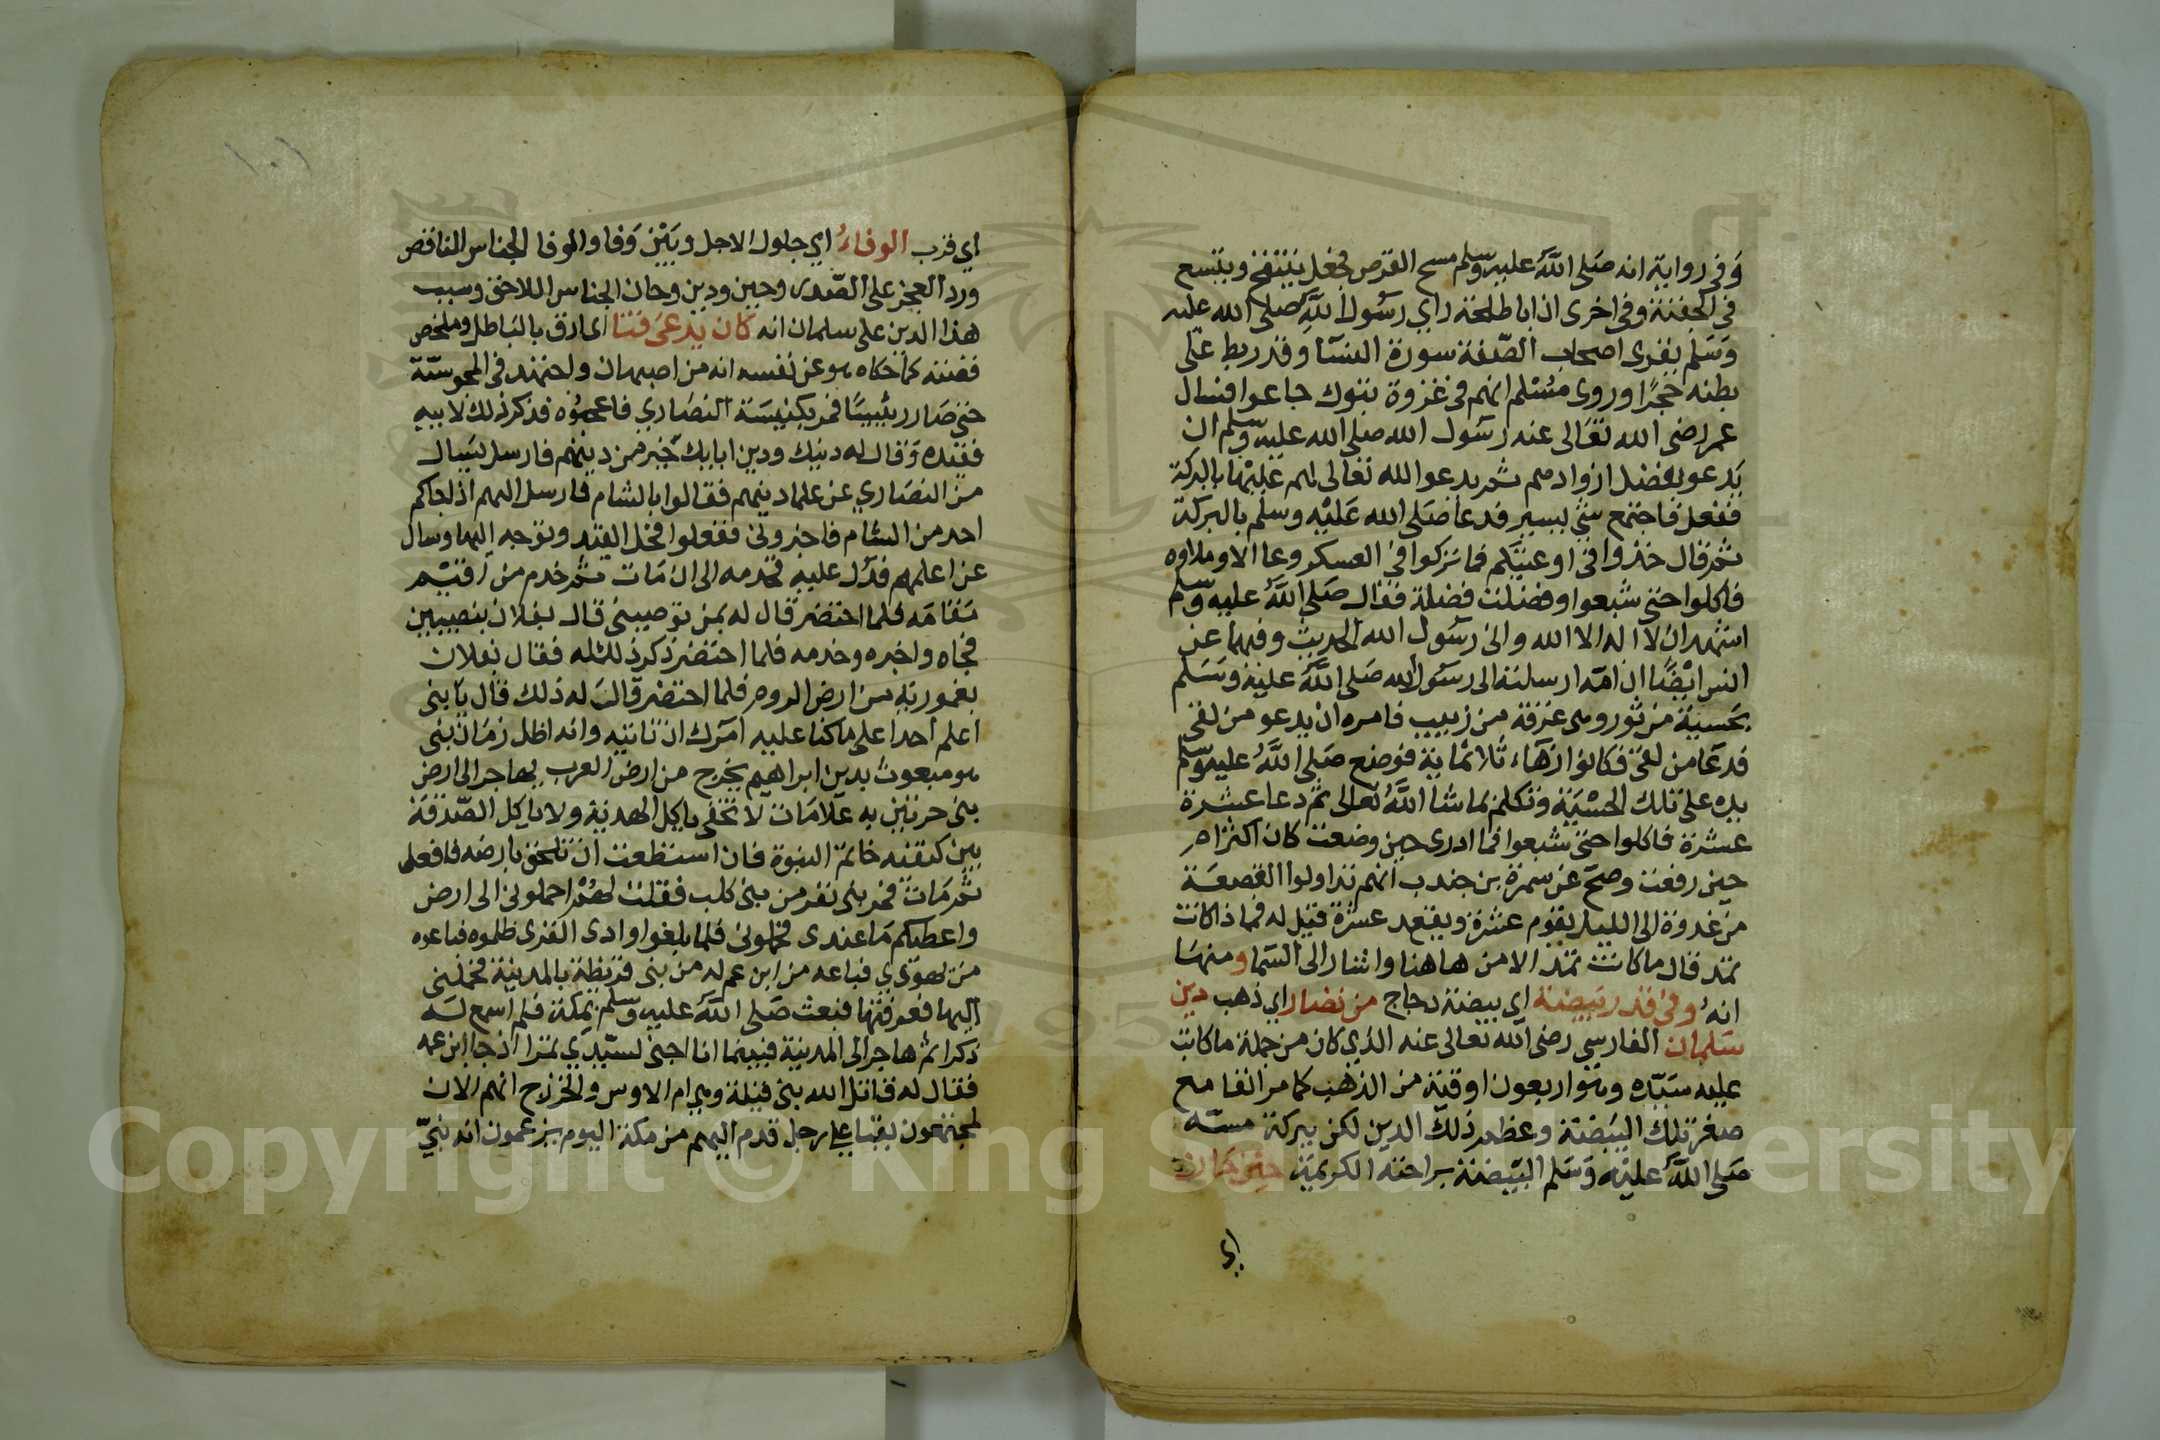 وفى رواية انه صلى الله عليه وسلم مسح القرص فجعل ينتفخ ويتسع
فى الجفنة وفى اخرى ان اباطلحة راي رسول الله صلى الله عليه
وسلم يقرى اصحاب الصفة سورة النسآ وقد ربط على
بطنه حجرًا وروى مسلم انهم فى غزوة تبوك جاعوا فسال
عمر رضى الله تعالى عنه رسول الله صلى الله عليه وسلم ان
يدعو بفضل ازوادهم ثم يدعو الله تعالى لهم عليها بالبركة
ففعل فاجتمع شئ يسير فدعا صلى الله عليه وسلم بالبركة
ثم قال خذوا فى اوعيتكم فما تركوا فى العسكر وعا الا وملاوه
فاكلوا حتى شبعوا وفضلت فضلة فقال صلى الله عليه وسلم
اشهد ان لا اله الا الله وانى رسول الله الحديث وفيهما عن
انس ايضًا ان امه ارسلته الى رسول الله صلى الله عليه وسلم
بحسية من تور وهى غزفة من زبيب فامره ان يدعو من لقى
فدعا من لقى فكانوا زهاء ثلاثماية فوضع صلى الله عليه وسلم
يده على تلك الحسية وتكلم بما شا الله تعالى ثم دعا عشرة
عشرة فاكلوا حتى شبعوا فما ادرى حين وضعت كان اكثر ام
حين رفعت وصح عن سمرة بن جندب انهم تداولوا القصعة
من غدوة الى الليل يقوم عشرة ويقعد عشرة فقيل له فما ذا كانت
تمد قال ما كانت تمد الا من هاهنا واشار الى السما ومنها
انه وفى قدر بيضة اي بيضة دجاج من نضار اي ذهب دين
سلمان الفارسي رضى الله تعالى عنه الذي كان من جملة ما كاتب
عليه سيده وهو اربعون اوقية من الذهب كما مر انفا مع
صغر تلك البيضة وعظم ذلك الدين لكن ببركة مسه
صلى الله عليه وسلم البيضة براحته الكريمة حين حان
اي
١٠١
اي قرب الوفاء اي حلول الاجل وبين وفا والوفا الجناس الناقص
ورد العجز على الصدر وحين ودين وحان الجناس اللاحق وسبب
هذا الدين على سلمان انه كان يدعى قنا اى ارق بالباطل وملخص
قصته كما حكاه هو عن نفسه انه من اصبهان واجتهد فى المجوسية
حتى صار رئيسا فمر بكنيسة النصاري فاعجبوه فذكر ذلك لابيه
فقيده وقال له دينك ودين ابايك خير من دينهم فارسل يسال
من النصاري عن علما دينهم فقالوا بالشام فارسل اليهم اذا جاكم
احد من الشام فاخبرونى ففعلوا فحل القيد وتوجه اليها وسال
عن اعلمهم فدل عليه فخدمه الى ان مات ثم خدم من اقيم
مقامه فلما احتضر قال له بمن توصينى قال بفلان بنصيبين
فجاه واخبره وخدمه فلما احتضر ذكر ذلك له فقال بفلان
بعمورية من ارض الروم فلما احتضر قالت له ذلك قال يا بنى
اعلم احدا على ما كنا عليه امرك ان تاتيه وانه اظل زمان نبى
هو مبعوث بدين ابراهيم يخرج من ارض العرب يهاجر الى ارض
بين حرتين به علامات لا تخفى ياكل الهدية ولا ياكل الصدقة
بين كتفيه خاتم النبوة فان استطعت ان تلحق بارضه فافعل
ثم مات فمر بى نفر من بنى كلب فقلت لهم احملونى الى ارض
واعطيكم ما عندى فحملونى فلما بلغوا وادى القرى ظلموه فباعوه
من يهودي فباعه من ابن عم له من بنى قريظة بالمدينة فحملنى
اليها فعرفتها فبعث صلى الله عليه وسلم بمكة فلم اسمع له
ذكرا ثم هاجر الى المدينة فبينما انا اجنى لسيدي تمرا اذ جا ابن عمه
فقال له قاتل الله بنى قيلة وهى ام الاوس والخزرج انهم الان
لمجتمعون بقبا على رجل قدم اليهم من مكة اليوم يزعمون انه نبي
Copyright © King Saud University
1957